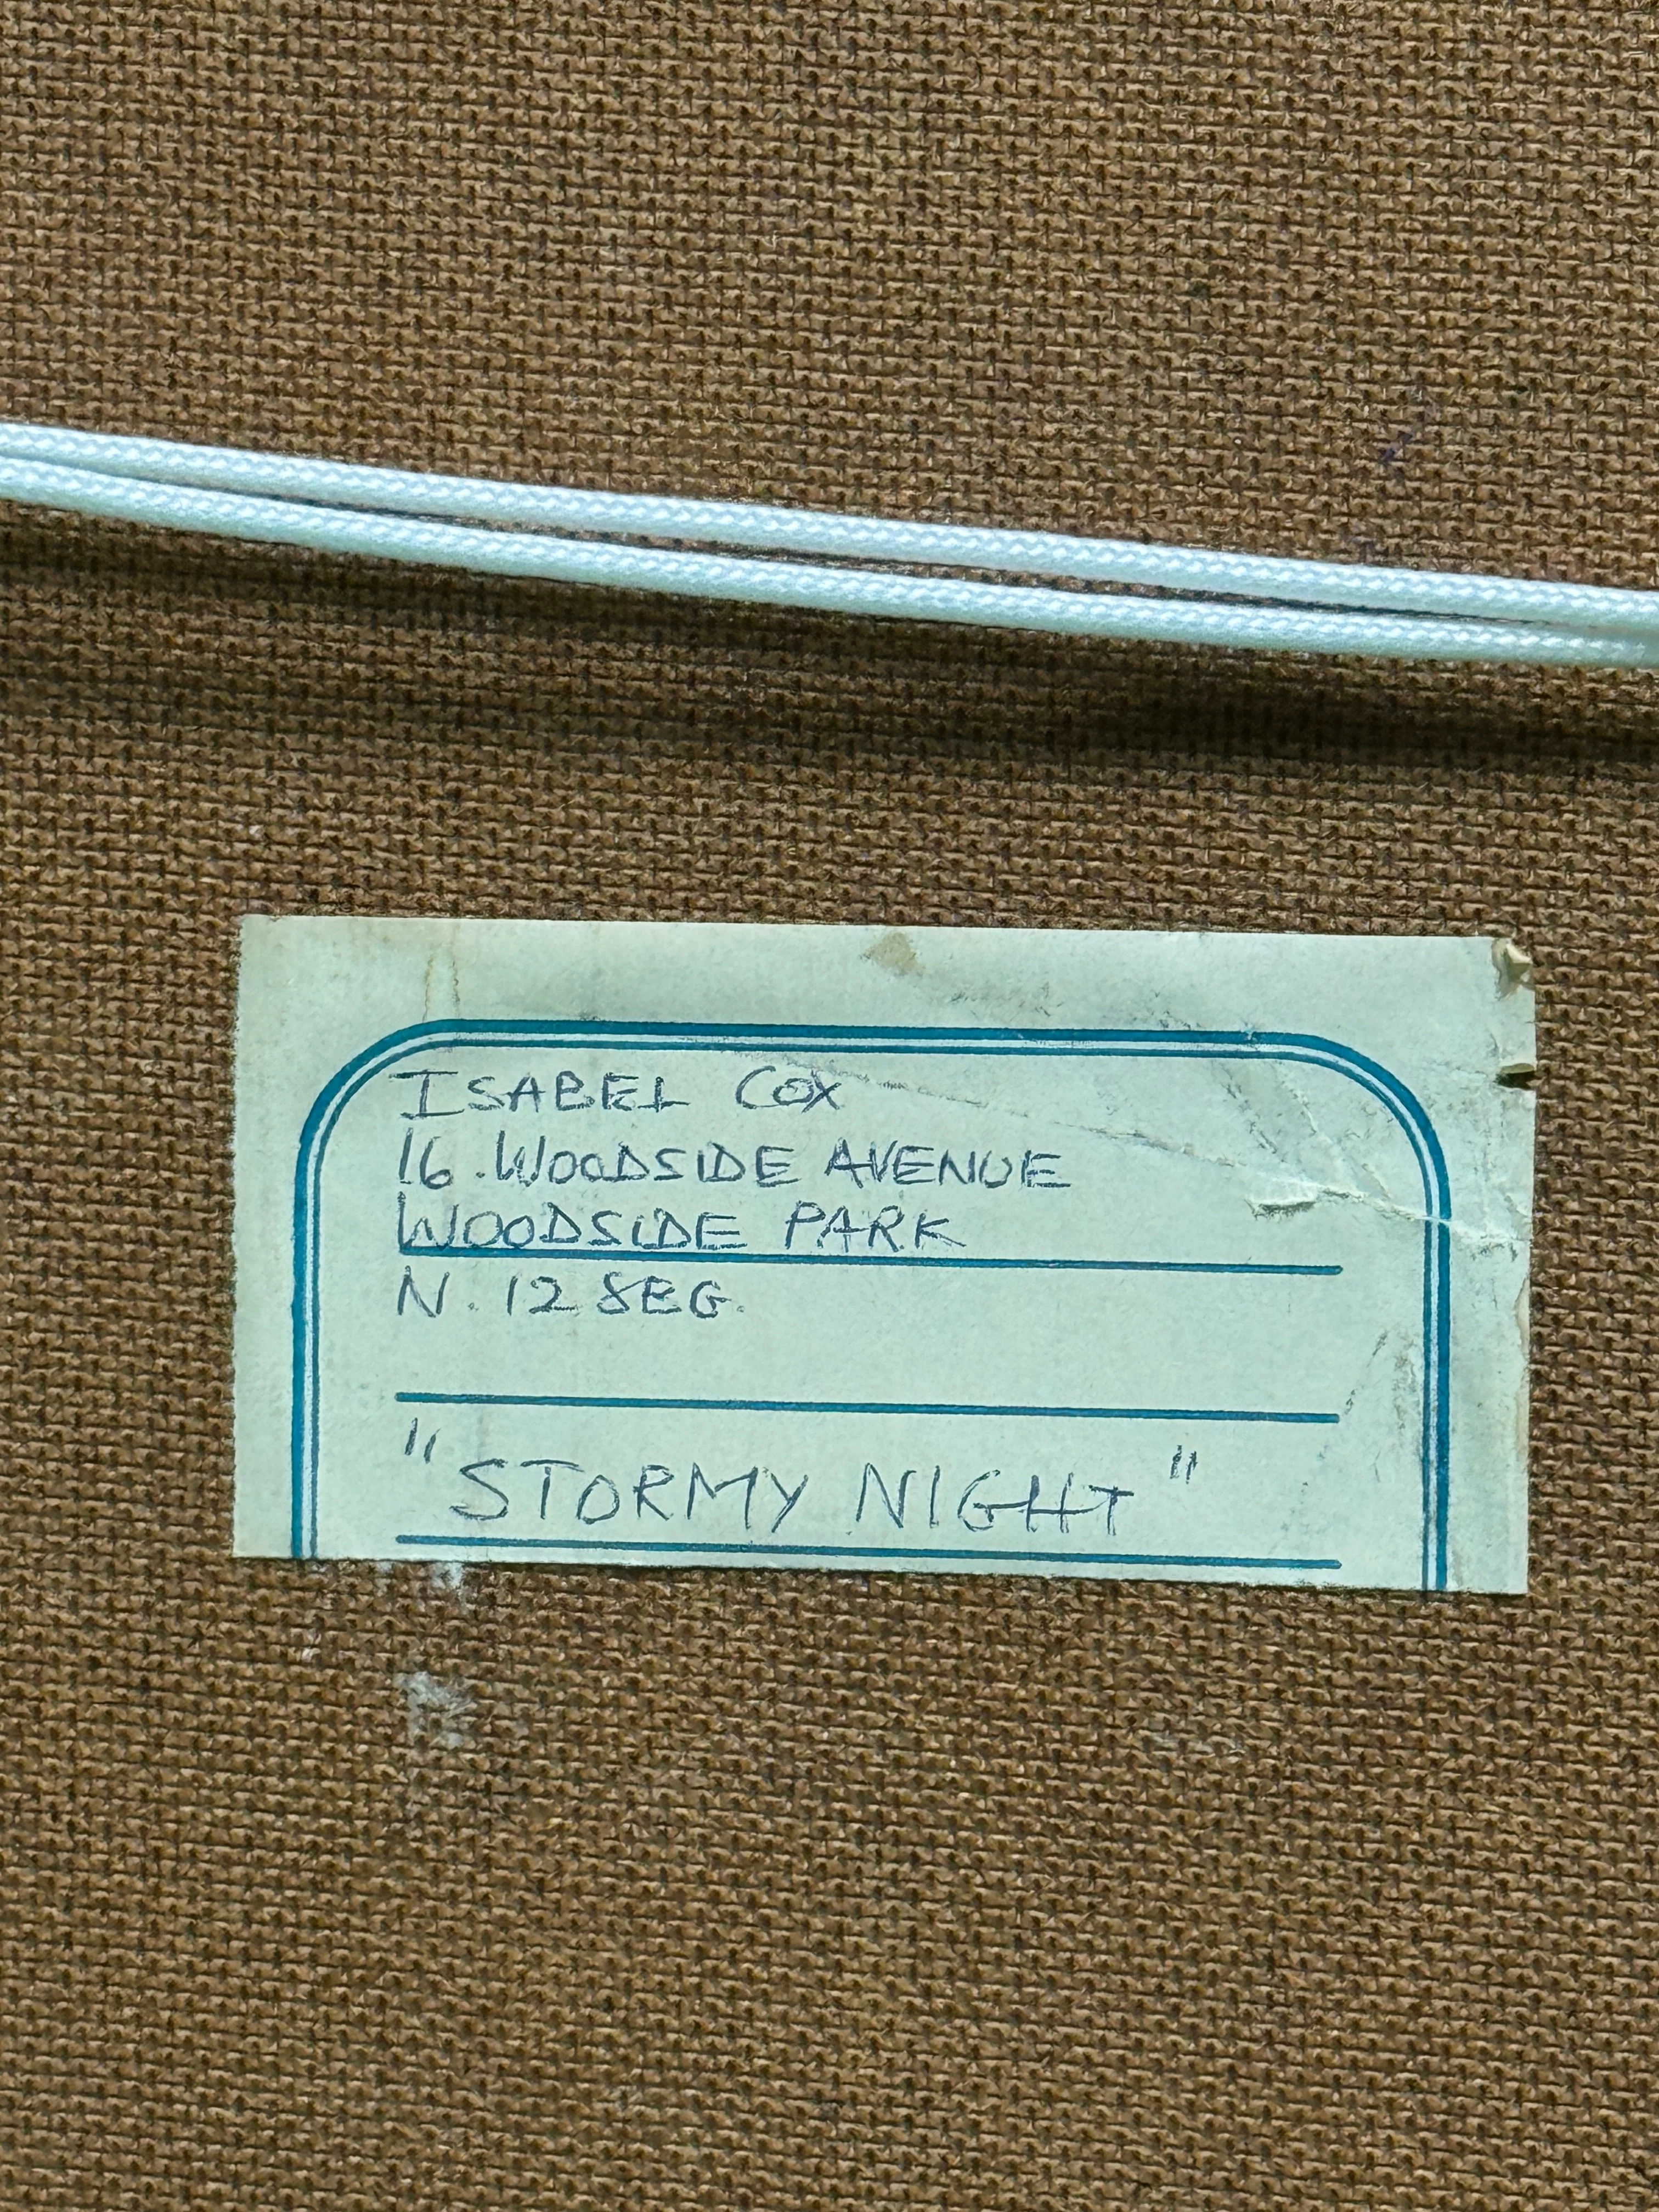 ISABEL COX
16. WOODSIDE AVENUE
WOODSIDE PARK
N. 12 8EG.
"STORMY NIGHT"